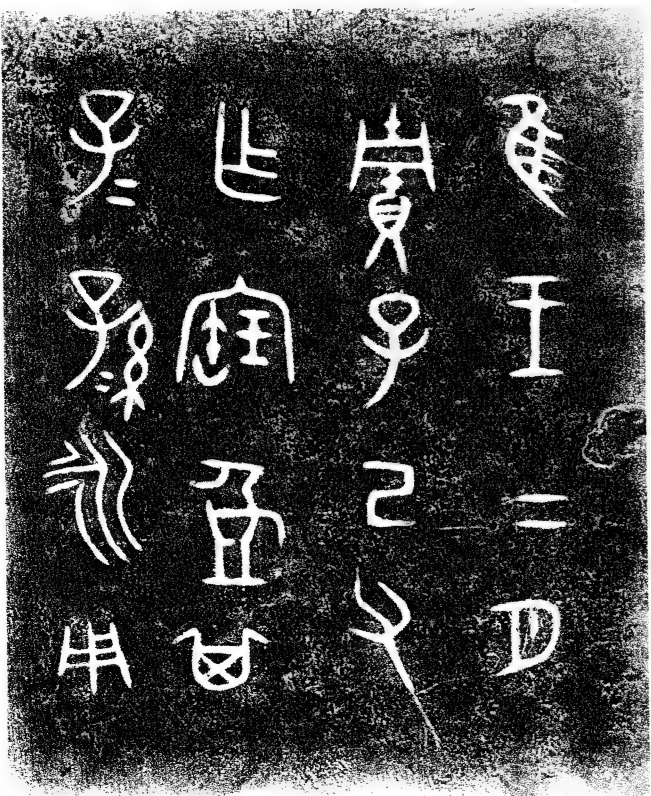 隹王二月
賈子己父
乍寶其
子=孫=永用